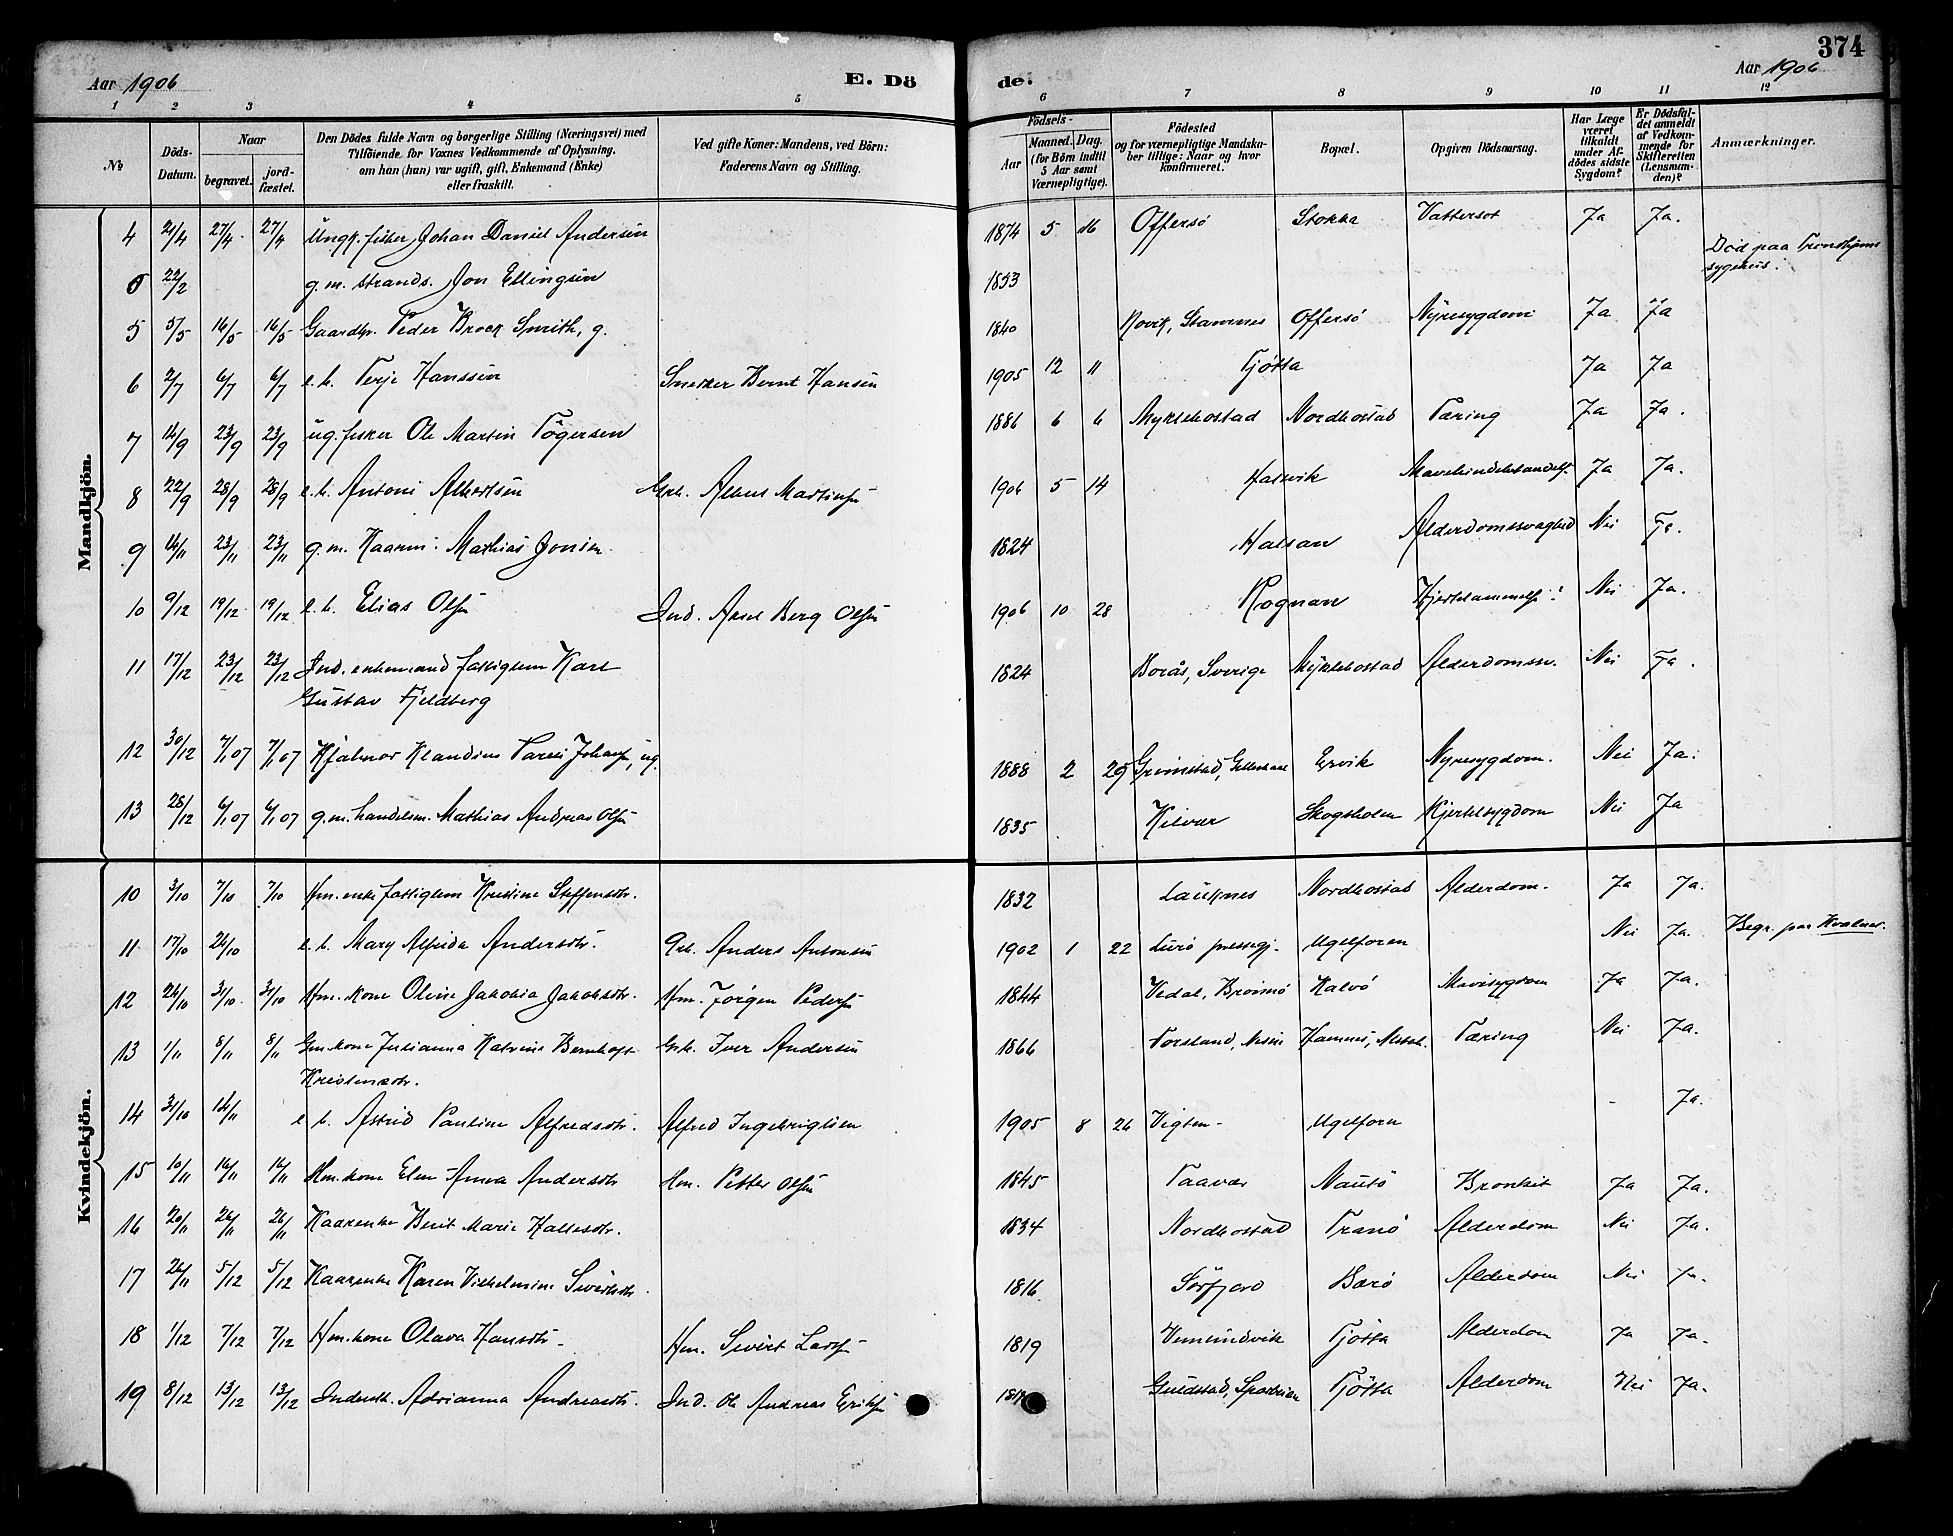 374
Aar 1906 E. Dö de. Aar 1906
1 2 3 4 5 6 7 8 9 10 11 12
№ Döds-Datum. Naar begravet. jord-fæstet. Den Dödes fulde Navn og borgerlige Stilling (Næringsvei) med Tilföiende for Voxnes Vedkommende af Oplysning, om han (hun) var ugift, gift, Enkemand (Enke) eller fraskilt. Ved gifte Koner: Mandens, ved Börn: Faderens Navn og Stilling. Födsels- Aar Maaned. Dag. (for Börn indtil 5 Aar samt Værnepligtige). Födested og for værnepligtige Mandskaber tillige: Naar og hvor konfirmeret. Bopæl. Opgiven Dödsaarsag. Har Læge været tilkaldt under Afdödes sidste Sygdom? Er Dödsfaldet anmeldt af Vedkommende for Skifteretten (Lensmanden)? Anmærkninger.
Mandkjön.
4 21/4 27/4 27/4 Ungk. fisker Johan Daniel Andersen 1874 5 16 Offersö Stokka Vattersot Ja Ja.
0 22/2 g.m. strands. Jon Ellingsen 1853 Död paa Trondhjems sygehus.
5 5/5 16/5 16/5 Gaardbr. Peder Brock Smith, g. 1840 Rovik, Stamnes Offersö Nyresygdom Ja Ja
6 2/7 6/7 6/7 e.b. Terje Hanssen Snekker Bernt Hansen 1905 12 11 Tjötta Ja Ja
7 14/9 23/9 23/9 ug. fisker Ole Martin Tögersen 1886 6 6 Myklebostad Nordbostad Tæring Ja Ja.
8 22/9 28/9 28/9 e.b. Antoni Albertsen Grb. Albert Martinsen 1906 5 14 Halsvik Ja Ja.
9 14/11 23/11 23/11 g.m. Kaarm. Mathias Jonsen 1824 Halsan Alderdomssvaghed Nei Ja.
10 9/12 19/12 19/12 e.b. Elias Olsen Ind. Aksel Berg Olsen 1906 10 28 Rognan Hjertelammelse? Nei Ja.
11 17/12 23/12 23/12 Ind. enkemand fattiglem Karl Gustav Fjeldberg 1824 Borås, Sverige Myklebostad Alderdomssv. Nei Ja.
12 30/12 7/1 07 7/1 07 Hjalmar Klaudius Johans, ug. 1888 2 29 Grimstad, Ervik Nyresygdom. Nei Ja.
13 28/12 6/1 07 6/1 07 g.m. handelsm. Mathias Andreas Olsen 1835 Kilvær Skogsholm Hjertesygdom Nei Ja
Kvindekjön.
10 3/10 7/10 7/10 Hm. enke fattiglem Kristine Steffensdtr. 1832 Lauknes Nordbostad Alderdom. Ja Ja.
11 17/10 26/10 e.b. Mary Alfrida Andersdtr. Grb. Anders Antonsen 1902 1 22 Lurö prestegj. Ugelforen Nei Ja. Begr. paa Kvalnes.
12 24/10 31/10 31/10 Hm. kone Oline Jakobia Jakobsdtr. Hm. Jörgen Peders 1844 Vedal, Brönnö Kalvö Mavesygdom Ja Ja.
13 1/11 8/11 8/11 Gm. kone Julianna Katrine Bernhoft Kristensdtr. Grb. Iver Andersen 1866 Forsland, Nesne Hamnes, Tæring Nei Ja.
14 31/10 14/11 e.b. Astrid Pauline Alfredsdtr. Alfred Ingebrigtsen 1905 8 26 Vigten Ugelforen - Ja.
15 10/11 16/11 16/11 Hm. kone Elen Anna Andersdtr Hm. Petter Olsen 1845 Taavær Nautö Bronkit Ja Ja.
16 20/11 26/11 26/11 Kaarenke Berit Marie Hallesdtr. 1834 Nordbostad Tranö Alderdom Nei Ja.
17 26/11 5/12 5/12 Kaarenke Karen Vilhelmine Sivertsdtr. 1816 Sörfjord Bærö Alderdom Nei Ja.
18 1/12 7/12 7/12 Hm. kone Olava Hansdtr. Hm. Sivert Lars 1819 Vennesundvik Tjötta Alderdom Ja Ja.
19 8/12 13/12 13/12 Inderstk. Adrianna Andreasdtr. Ind. Ole Andreas Eriksen Guldstad, Tjötta Alderdom Nei Ja.